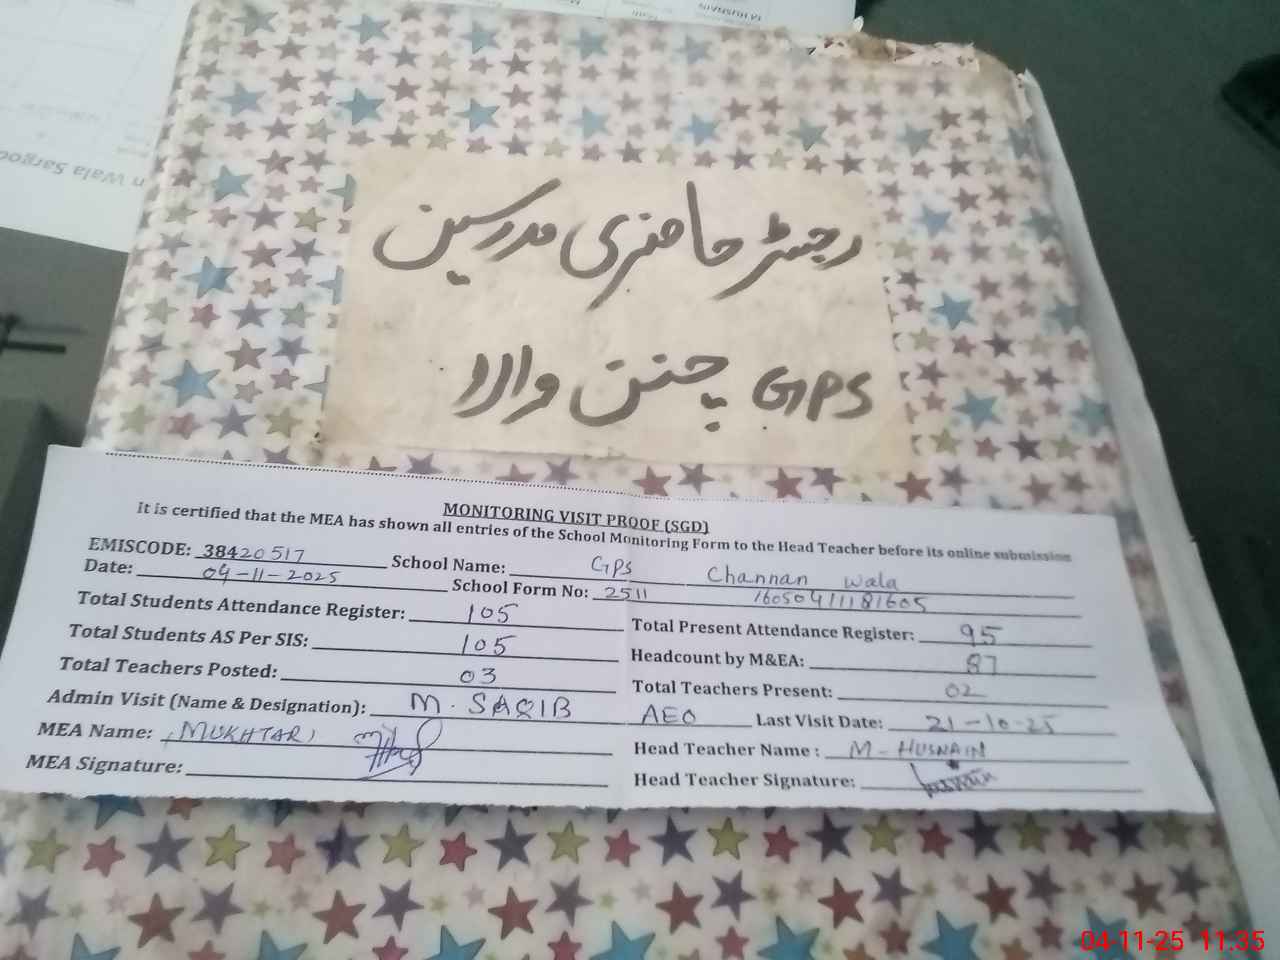 M HUSNAIN
n Wala Sargod
رجسٹر حاضری مدرسین
GPS چنن والا
MONITORING VISIT PROOF (SGD)
It is certified that the MEA has shown all entries of the School Monitoring Form to the Head Teacher before its online submission
EMISCODE: 38420517 School Name: GPS Channan Wala
Date: 04-11-2025 School Form No: 2511 16050411181605
Total Students Attendance Register: 105 Total Present Attendance Register: 95
Total Students AS Per SIS: 105 Headcount by M&EA: 87
Total Teachers Posted: 03 Total Teachers Present: 02
Admin Visit (Name & Designation): M. SAQIB AEO Last Visit Date: 21-10-25
MEA Name: MUKHTAR Head Teacher Name : M-HUSNAIN
MEA Signature: Head Teacher Signature: Husnain
04-11-25 11:35